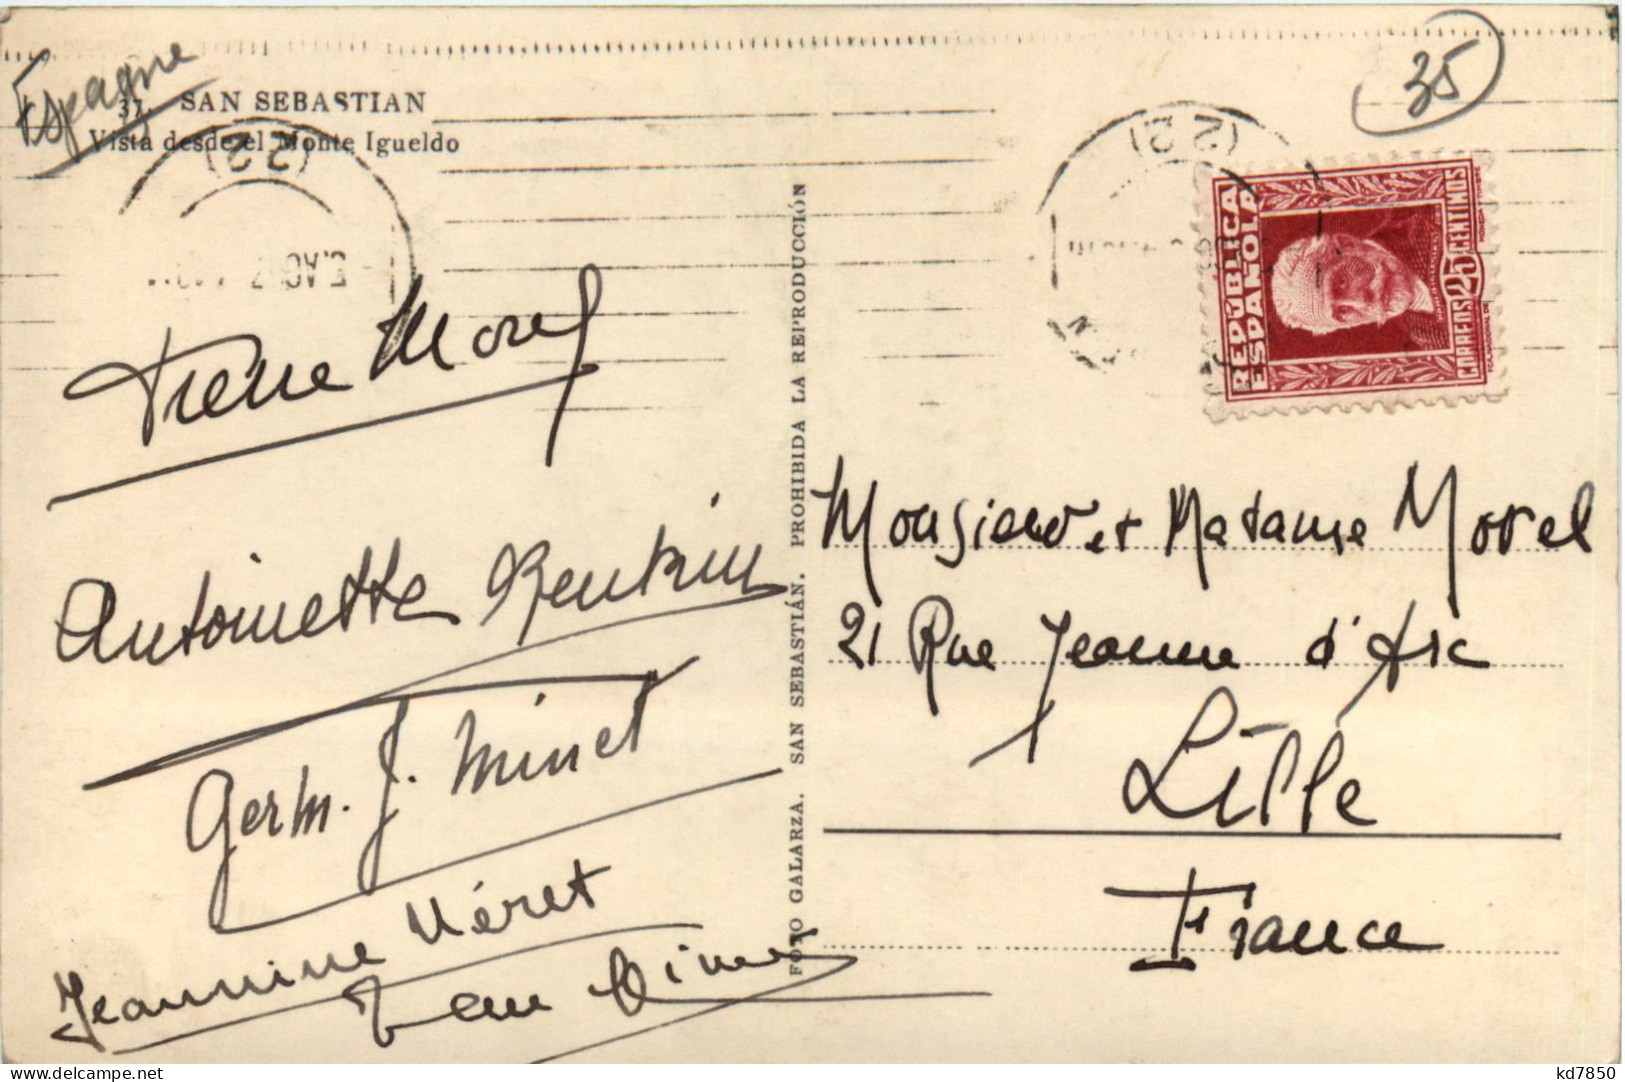 Espagne
35
37. SAN SEBASTIAN
Vista desde el Monte Igueldo
(22)
(22)
REPÚBLICA
ESPAÑOLA
CORREOS 25 CENTIMOS
Pierre Morel
Antoinette Renkin
Germ. J. Minet
Jeannine Néret
Jean
FOTO GALARZA. SAN SEBASTIÁN. PROHIBIDA LA REPRODUCCIÓN
Monsieur et Madame Morel
21 Rue Jeanne d'Arc
Lille
France
kd7850